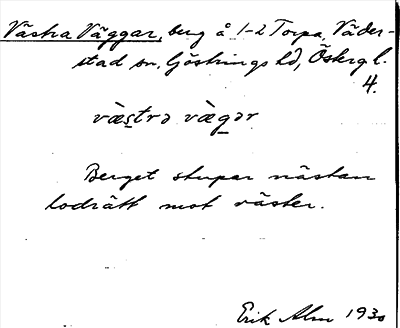 Västra Väggar, berg å 1-2 Torpa, Väder-
stad sn. Göstrings hd, Östergl.
4.
væ̀s̠trə væ̀g̠ər
Berget stupar nästan
lodrätt mot väster.
Erik Alm 1930